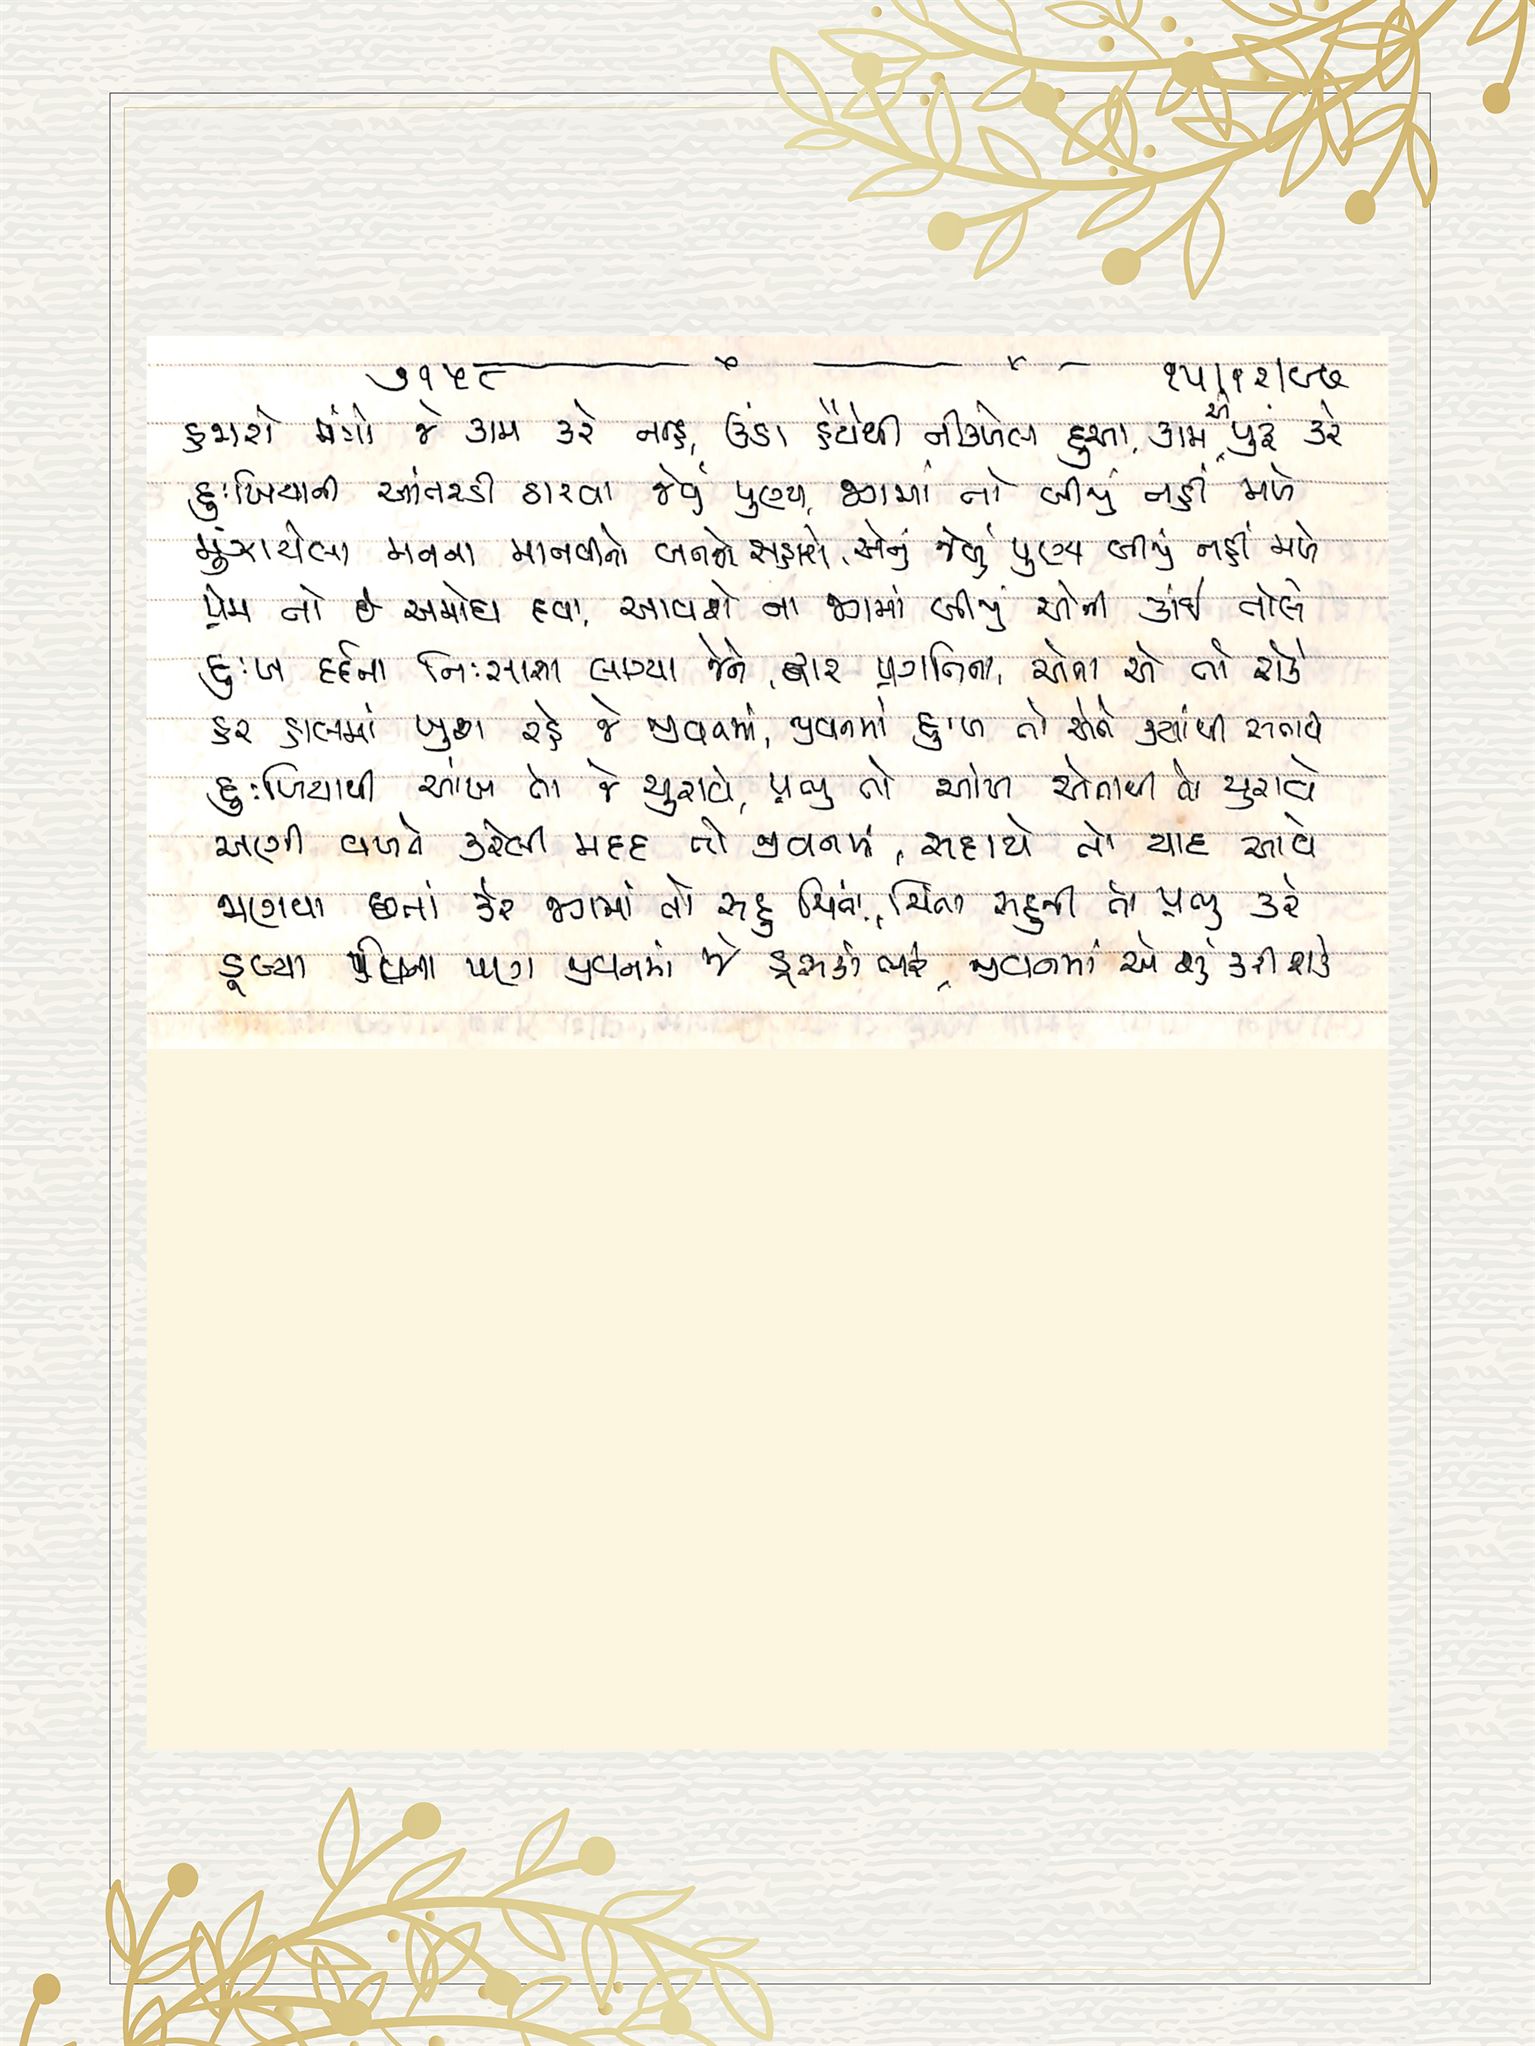 ૭૧૫૮ ૧૫/૧૨/૯૭
હજારો મંત્રો જે કામ કરે નહિ, ઉંડા હૈયેથી નીકળેલ દુઆ, કામ એ પુરું કરે
દુઃખિયાની આંતરડી ઠારવા જેવું પુણ્ય, જગમાં તો બીજું નહીં મળે
મૂંઝાયેલા મનના માનવીનો બનજો સહારો, એનું જેવું પુણ્ય બીજું નહીં મળે
પ્રેમ તો છે અમોઘ દવા, આવશે ના જગમાં બીજું એની કાંઈ તોલે
દુઃખ દર્દના નિઃસાસા લાગ્યા જેને, દ્વાર પ્રગતિના, એના એ તો રોકે
હર હાલમાં ખુશ રહે જે જીવનમાં, જીવનમાં દુઃખ તો એને ક્યાંથી સતાવે
દુઃખિયાથી આંખ તો જે ચુરાવે, પ્રભુ તો આંખ એનાથી તો ચુરાવે
અણી વખતે કરેલી મદદ તો જીવનમાં, સદાયે તો યાદ આવે
ભણવા છતાં કરે જગમાં તો સહુ ચિંતા, ચિંતા સહુની તો પ્રભુ કરે
ડૂબ્યા વિના પણ જીવનમાં જે ડૂસકાં ભરે, જીવનમાં એ શું કરી શકે